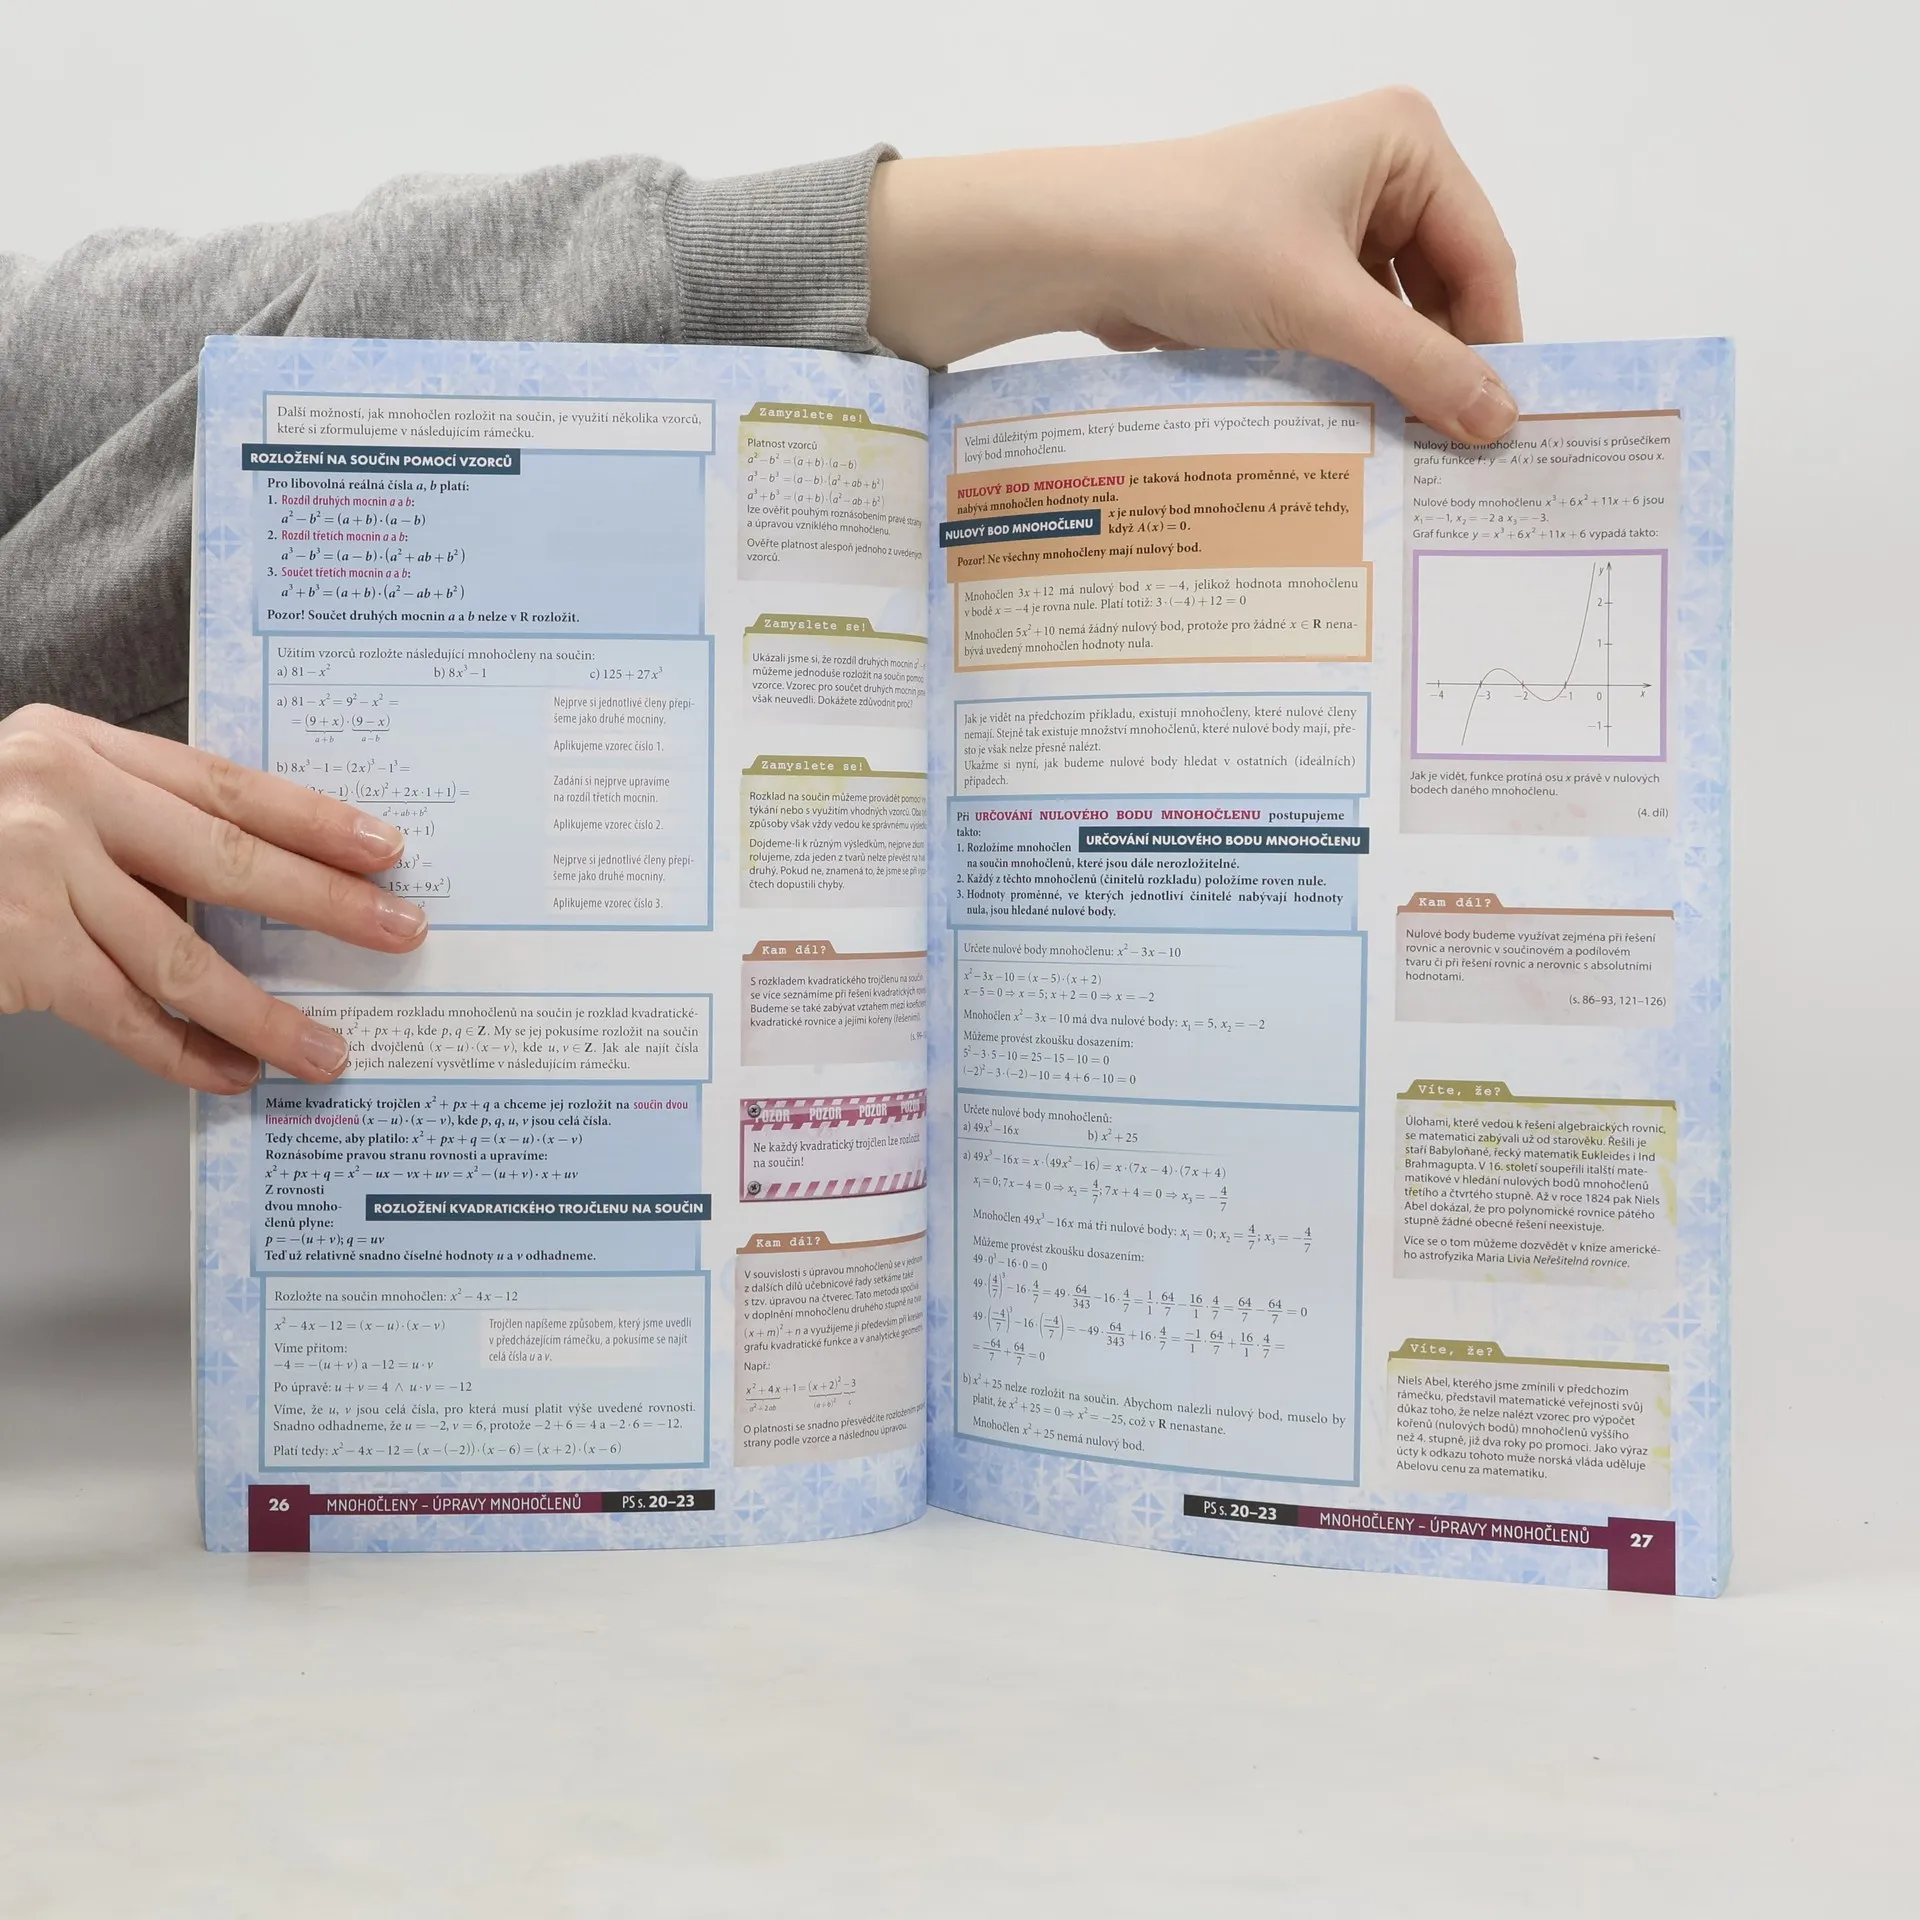 Další možností, jak mnohočlen rozložit na součin, je využití několika vzorců,
které si zformulujeme v následujícím rámečku.
ROZLOŽENÍ NA SOUČIN POMOCÍ VZORCŮ
Pro libovolná reálná čísla a, b platí:
1. Rozdíl druhých mocnin a a b:
a² – b² = (a + b)·(a – b)
2. Rozdíl třetích mocnin a a b:
a³ – b³ = (a – b)·(a² + ab + b²)
3. Součet třetích mocnin a a b:
a³ + b³ = (a + b)·(a² – ab + b²)
Pozor! Součet druhých mocnin a a b nelze v R rozložit.
Užitím vzorců rozložte následující mnohočleny na součin:
a) 81 – x² b) 8x³ – 1 c) 125 + 27x³
a) 81 – x² = 9² – x² =
= (9 + x)·(9 – x)
a+b a–b
Nejprve si jednotlivé členy přepí-
šeme jako druhé mocniny.
Aplikujeme vzorec číslo 1.
b) 8x³ – 1 = (2x)³ – 1³ =
x – 1)·((2x)² + 2x·1 + 1) =
a² + ab + b²
x + 1)
Zadání si nejprve upravíme
na rozdíl třetích mocnin.
Aplikujeme vzorec číslo 2.
3x)³ =
15x + 9x²)
Nejprve si jednotlivé členy přepí-
šeme jako třetí mocniny.
Aplikujeme vzorec číslo 3.
případem rozkladu mnohočlenů na součin je rozklad kvadratické-
x² + px + q, kde p, q ∈ Z. My se jej pokusíme rozložit na součin
dvojčlenů (x – u)·(x – v), kde u, v ∈ Z. Jak ale najít čísla
jejich nalezení vysvětlíme v následujícím rámečku.
Máme kvadratický trojčlen x² + px + q a chceme jej rozložit na součin dvou
lineárních dvojčlenů (x – u)·(x – v), kde p, q, u, v jsou celá čísla.
Tedy chceme, aby platilo: x² + px + q = (x – u)·(x – v)
Roznásobíme pravou stranu rovnosti a upravíme:
x² + px + q = x² – ux – vx + uv = x² – (u + v)·x + uv
Z rovnosti
dvou mnoho-
členů plyne:
ROZLOŽENÍ KVADRATICKÉHO TROJČLENU NA SOUČIN
p = –(u + v); q = uv
Teď už relativně snadno číselné hodnoty u a v odhadneme.
Rozložte na součin mnohočlen: x² – 4x – 12
x² – 4x – 12 = (x – u)·(x – v)
Víme přitom:
–4 = –(u + v) a –12 = u·v
Trojčlen napíšeme způsobem, který jsme uvedli
v předcházejícím rámečku, a pokusíme se najít
celá čísla u a v.
Po úpravě: u + v = 4 ∧ u·v = –12
Víme, že u, v jsou celá čísla, pro která musí platit výše uvedené rovnosti.
Snadno odhadneme, že u = –2, v = 6, protože –2 + 6 = 4 a –2·6 = –12.
Platí tedy: x² – 4x – 12 = (x – (–2))·(x – 6) = (x + 2)·(x – 6)
Zamyslete se!
Platnost vzorců
a² – b² = (a + b)·(a – b)
a³ – b³ = (a – b)·(a² + ab + b²)
a³ + b³ = (a + b)·(a² – ab + b²)
lze ověřit pouhým roznásobením pravé strany
a úpravou vzniklého mnohočlenu.
Ověřte platnost alespoň jednoho z uvedených
vzorců.
Zamyslete se!
Ukázali jsme si, že rozdíl druhých mocnin a²
můžeme jednoduše rozložit na součin pomocí
vzorce. Vzorec pro součet druhých mocnin jsme
však neuvedli. Dokážete zdůvodnit proč?
Zamyslete se!
Rozklad na součin můžeme provádět pomocí
týkání nebo s využitím vhodných vzorců. Oba
způsoby však vždy vedou ke správnému výsledku.
Dojdeme-li k různým výsledkům, nejprve zkont
rolujeme, zda jeden z tvarů nelze převést na
druhý. Pokud ne, znamená to, že jsme se při
čtech dopustili chyby.
Kam dál?
S rozkladem kvadratického trojčlenu na součin
se více seznámíme při řešení kvadratických
Budeme se také zabývat vztahem mezi
kvadratické rovnice a jejími kořeny (řešeními).
(s. 99–
POZOR POZOR POZOR POZOR
Ne každý kvadratický trojčlen lze rozložit
na součin!
Kam dál?
V souvislosti s úpravou mnohočlenů se v jednom
z dalších dílů učebnicové řady setkáme také
s tzv. úpravou na čtverec. Tato metoda spočívá
v doplnění mnohočlenu druhého stupně na tvar
(x + m)² + n a využijeme ji především při kreslení
grafu kvadratické funkce a v analytické geometrii.
Např.:
x² + 4x + 1 = (x + 2)² – 3
a² + 2ab (a+b)² c
O platnosti se snadno přesvědčíte rozložením
strany podle vzorce a následnou úpravou.
26 MNOHOČLENY – ÚPRAVY MNOHOČLENŮ PS s. 20–23
Velmi důležitým pojmem, který budeme často při výpočtech používat, je nu-
lový bod mnohočlenu.
NULOVÝ BOD MNOHOČLENU je taková hodnota proměnné, ve které
nabývá mnohočlen hodnoty nula.
NULOVÝ BOD MNOHOČLENU
x je nulový bod mnohočlenu A právě tehdy,
když A(x) = 0.
Pozor! Ne všechny mnohočleny mají nulový bod.
Mnohočlen 3x + 12 má nulový bod x = –4, jelikož hodnota mnohočlenu
v bodě x = –4 je rovna nule. Platí totiž: 3·(–4) + 12 = 0
Mnohočlen 5x² + 10 nemá žádný nulový bod, protože pro žádné x ∈ R nena-
bývá uvedený mnohočlen hodnoty nula.
Jak je vidět na předchozím příkladu, existují mnohočleny, které nulové členy
nemají. Stejně tak existuje množství mnohočlenů, které nulové body mají, pře-
sto je však nelze přesně nalézt.
Ukažme si nyní, jak budeme nulové body hledat v ostatních (ideálních)
případech.
Při URČOVÁNÍ NULOVÉHO BODU MNOHOČLENU postupujeme
takto:
URČOVÁNÍ NULOVÉHO BODU MNOHOČLENU
1. Rozložíme mnohočlen
na součin mnohočlenů, které jsou dále nerozložitelné.
2. Každý z těchto mnohočlenů (činitelů rozkladu) položíme roven nule.
3. Hodnoty proměnné, ve kterých jednotliví činitelé nabývají hodnoty
nula, jsou hledané nulové body.
Určete nulové body mnohočlenu: x² – 3x – 10
x² – 3x – 10 = (x – 5)·(x + 2)
x – 5 = 0 ⇒ x = 5; x + 2 = 0 ⇒ x = –2
Mnohočlen x² – 3x – 10 má dva nulové body: x₁ = 5, x₂ = –2
Můžeme provést zkoušku dosazením:
5² – 3·5 – 10 = 25 – 15 – 10 = 0
(–2)² – 3·(–2) – 10 = 4 + 6 – 10 = 0
Určete nulové body mnohočlenů:
a) 49x³ – 16x b) x² + 25
a) 49x³ – 16x = x·(49x² – 16) = x·(7x – 4)·(7x + 4)
x₁ = 0; 7x – 4 = 0 ⇒ x₂ = 4/7; 7x + 4 = 0 ⇒ x₃ = –4/7
Mnohočlen 49x³ – 16x má tři nulové body: x₁ = 0; x₂ = 4/7; x₃ = –4/7
Můžeme provést zkoušku dosazením:
49·0³ – 16·0 = 0
49·(4/7)³ – 16·4/7 = 49·64/343 – 16·4/7 = 1/1·64/7 – 16/1·4/7 = 64/7 – 64/7 = 0
49·(–4/7)³ – 16·(–4/7) = –49·64/343 + 16·4/7 = –1/1·64/7 + 16/1·4/7 =
= –64/7 + 64/7 = 0
b) x² + 25 nelze rozložit na součin. Abychom nalezli nulový bod, muselo by
platit, že x² + 25 = 0 ⇒ x² = –25, což v R nenastane.
Mnohočlen x² + 25 nemá nulový bod.
Nulový bod mnohočlenu A(x) souvisí s průsečíkem
grafu funkce f: y = A(x) se souřadnicovou osou x.
Např.:
Nulové body mnohočlenu x³ + 6x² + 11x + 6 jsou
x₁ = –1, x₂ = –2 a x₃ = –3.
Graf funkce y = x³ + 6x² + 11x + 6 vypadá takto:
y
2
1
–4 –3 –2 –1 0 x
–1
Jak je vidět, funkce protíná osu x právě v nulových
bodech daného mnohočlenu.
(4. díl)
Kam dál?
Nulové body budeme využívat zejména při řešení
rovnic a nerovnic v součinovém a podílovém
tvaru či při řešení rovnic a nerovnic s absolutními
hodnotami.
(s. 86–93, 121–126)
Víte, že?
Úlohami, které vedou k řešení algebraických rovnic,
se matematici zabývali už od starověku. Řešili je
staří Babyloňané, řecký matematik Eukleides i Ind
Brahmagupta. V 16. století soupeřili italští mate-
matikové v hledání nulových bodů mnohočlenů
třetího a čtvrtého stupně. Až v roce 1824 pak Niels
Abel dokázal, že pro polynomické rovnice pátého
stupně žádné obecné řešení neexistuje.
Více se o tom můžeme dozvědět v knize americké-
ho astrofyzika Maria Livia Neřešitelná rovnice.
Víte, že?
Niels Abel, kterého jsme zmínili v předchozím
rámečku, představil matematické veřejnosti svůj
důkaz toho, že nelze nalézt vzorec pro výpočet
kořenů (nulových bodů) mnohočlenů vyššího
než 4. stupně, již dva roky po promoci. Jako výraz
úcty k odkazu tohoto muže norská vláda uděluje
Abelovu cenu za matematiku.
PS s. 20–23 MNOHOČLENY – ÚPRAVY MNOHOČLENŮ 27